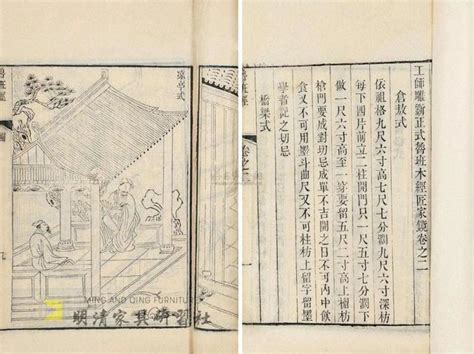 工師雕斵正式魯班木經匠家鏡卷之二
倉敖式
依祖格九尺六寸高七尺七分濶九尺六寸深枋
每下四片前立二柱開門只一尺五寸七分濶下
做一尺六寸高至一穿要留五尺二寸高上楣枋
槍門要成對切忌成單不吉開之日不可内中飲
食又不可用墨斗曲尺又不可柱枋上留字留墨
學者記之切忌
橋梁式
卷之二
凉亭式
魯班經
圖
MING AND QING FURNITURE
明清家具研習社